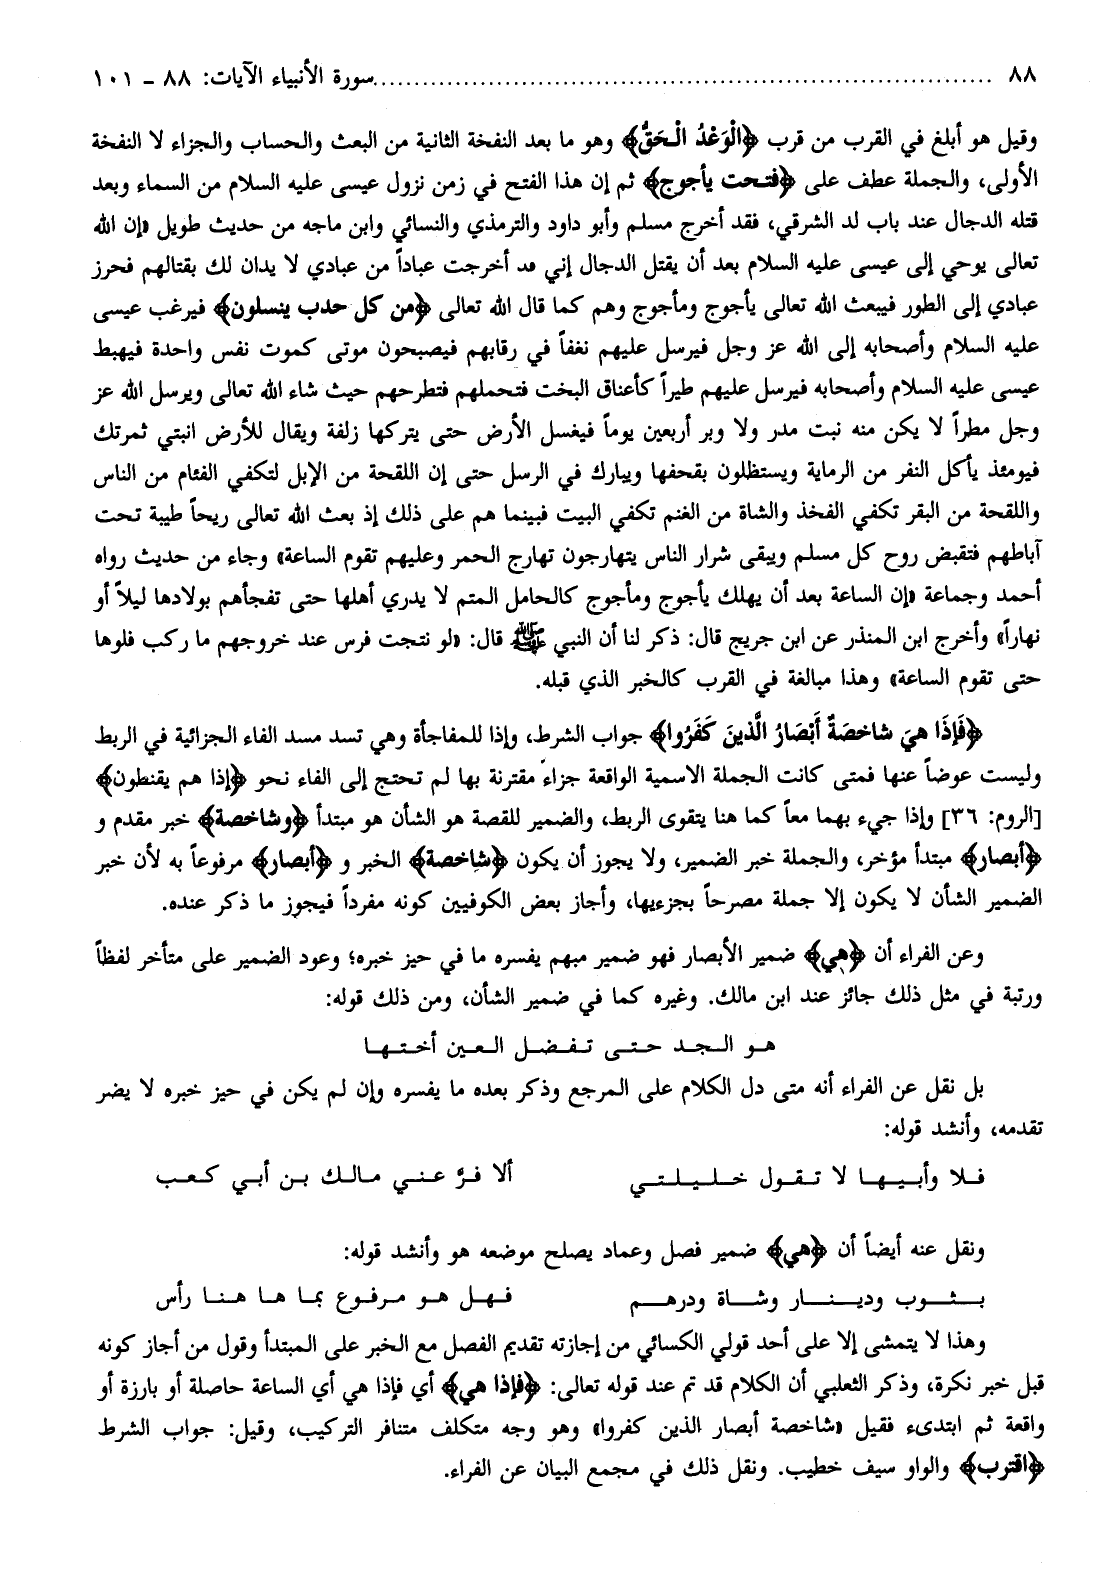 ٨٨ ........................................................................ سورة الأنبياء الآيات: ٨٨ ـ ١٠١
وقيل هو أبلغ في القرب من قرب ﴿الْوَعْدُ الْحَقُّ﴾ وهو ما بعد النفخة الثانية من البعث والحساب والجزاء لا النفخة
الأولى، والجملة عطف على ﴿فتحت يأجوج﴾ ثم إن هذا الفتح في زمن نزول عيسى عليه السلام من السماء وبعد
قتله الدجال عند باب لد الشرقي، فقد أخرج مسلم وأبو داود والترمذي والنسائي وابن ماجه من حديث طويل «إن الله
تعالى يوحي إلى عيسى عليه السلام بعد أن يقتل الدجال إني قد أخرجت عباداً من عبادي لا يدان لك بقتالهم فحرز
عبادي إلى الطور فيبعث الله تعالى يأجوج ومأجوج وهم كما قال الله تعالى ﴿من كل حدب ينسلون﴾ فيرغب عيسى
عليه السلام وأصحابه إلى الله عز وجل فيرسل عليهم نغفاً في رقابهم فيصبحون موتى كموت نفس واحدة فيهبط
عيسى عليه السلام وأصحابه فيرسل عليهم طيراً كأعناق البخت فتحملهم فتطرحهم حيث شاء الله تعالى ويرسل الله عز
وجل مطراً لا يكن منه نبت مدر ولا وبر أربعين يوماً فيغسل الأرض حتى يتركها زلفة ويقال للأرض انبتي ثمرتك
فيومئذ يأكل النفر من الرماية ويستظلون بقحفها ويبارك في الرسل حتى إن اللقحة من الإبل لتكفي الفئام من الناس
واللقحة من البقر تكفي الفخذ والشاة من الغنم تكفي البيت فبينما هم على ذلك إذ بعث الله تعالى ريحاً طيبة تحت
آباطهم فتقبض روح كل مسلم ويبقى شرار الناس يتهارجون تهارج الحمر وعليهم تقوم الساعة» وجاء من حديث رواه
أحمد وجماعة «إن الساعة بعد أن يهلك يأجوج ومأجوج كالحامل المتم لا يدري أهلها حتى تفجأهم بولادها ليلاً أو
نهاراً» وأخرج ابن المنذر عن ابن جريج قال: ذكر لنا أن النبي ﷺ قال: «لو نتجت فرس عند خروجهم ما ركب فلوها
حتى تقوم الساعة» وهذا مبالغة في القرب كالخبر الذي قبله.
﴿فَإِذَا هِيَ شاخصَةٌ أَبْصَارُ الَّذينَ كَفَرُوا﴾ جواب الشرط، وإذا للمفاجأة وهي تسد مسد الفاء الجزائية في الربط
وليست عوضاً عنها فمتى كانت الجملة الاسمية الواقعة جزاء مقترنة بها لم تحتج إلى الفاء نحو ﴿إذا هم يقنطون﴾
[الروم: ٣٦] وإذا جيء بهما معاً كما هنا يتقوى الربط، والضمير للقصة هو الشأن هو مبتدأ ﴿وشاخصة﴾ خبر مقدم و
﴿أبصار﴾ مبتدأ مؤخر، والجملة خبر الضمير، ولا يجوز أن يكون ﴿شاخصة﴾ الخبر و ﴿أبصار﴾ مرفوعاً به لأن خبر
الضمير الشأن لا يكون إلا جملة مصرحاً بجزءيها، وأجاز بعض الكوفيين كونه مفرداً فيجوز ما ذكر عنده.
وعن الفراء أن ﴿هي﴾ ضمير الأبصار فهو ضمير مبهم يفسره ما في حيز خبره؛ وعود الضمير على متأخر لفظاً
ورتبة في مثل ذلك جائز عند ابن مالك. وغيره كما في ضمير الشأن، ومن ذلك قوله:
هـو الـجد حـتـى تـفـضـل الـعـين أخـتـهـا
بل نقل عن الفراء أنه متى دل الكلام على المرجع وذكر بعده ما يفسره وإن لم يكن في حيز خبره لا يضر
تقدمه، وأنشد قوله:
فـلا وأبـيـهـا لا تـقـول خـلـيـلـتـي ألا فـرّ عـنـي مـالـك بـن أبـي كـعـب
ونقل عنه أيضاً أن ﴿هي﴾ ضمير فصل وعماد يصلح موضعه هو وأنشد قوله:
بـثـوب وديـنـار وشـاة ودرهـم فـهـل هـو مـرفـوع بما هـا هـنـا رأس
وهذا لا يتمشى إلا على أحد قولي الكسائي من إجازته تقديم الفصل مع الخبر على المبتدأ وقول من أجاز كونه
قبل خبر نكرة، وذكر الثعلبي أن الكلام قد تم عند قوله تعالى: ﴿فإذا هي﴾ أي فإذا هي أي الساعة حاصلة أو بارزة أو
واقعة ثم ابتدىء فقيل «شاخصة أبصار الذين كفروا» وهو وجه متكلف متنافر التركيب، وقيل: جواب الشرط
﴿اقترب﴾ والواو سيف خطيب. ونقل ذلك في مجمع البيان عن الفراء.